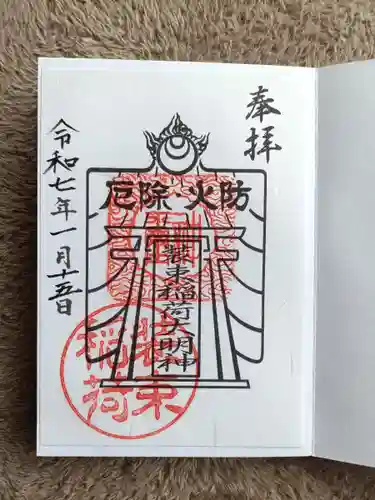 奉拝
防火・除厄
装束稲荷大明神
装束
稲荷
令和七年一月十五日